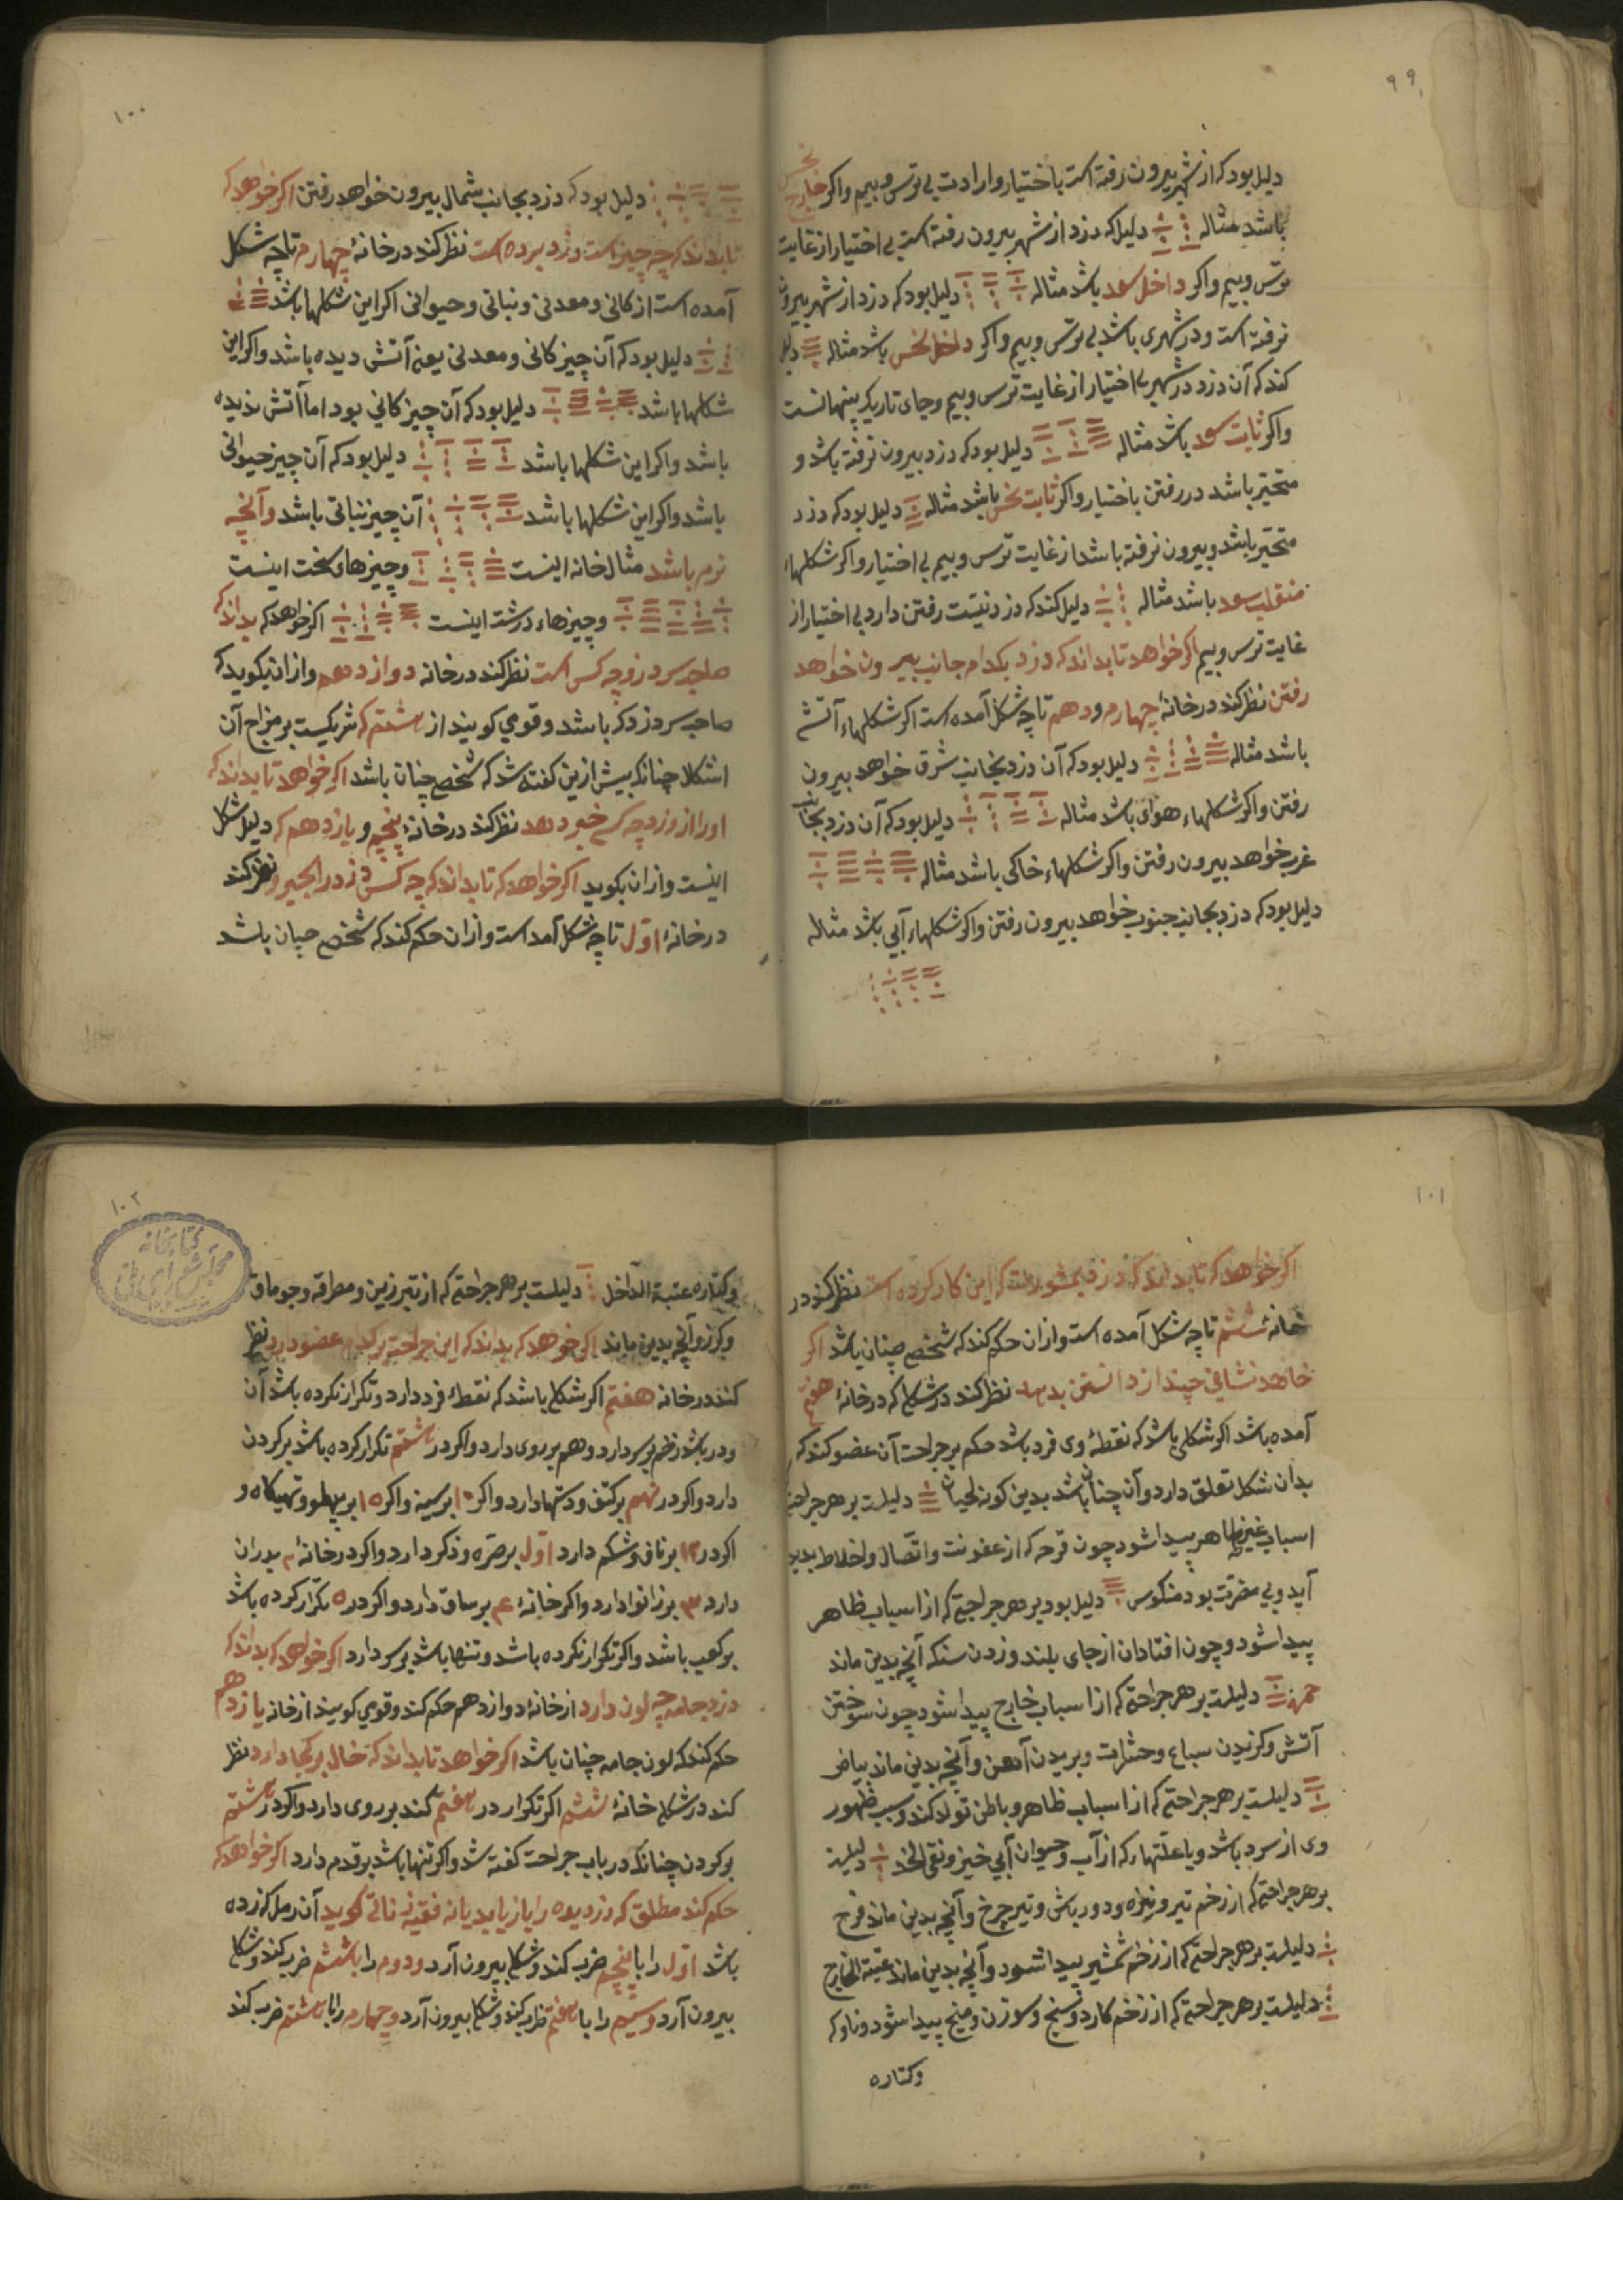 ۹۹
دلیل بود که از شهر بیرون رفته است باختیار و ارادت بی ترس و بیم و اکر خارج نحس
باشد مثاله دلیل که دزد از شهر بیرون رفته است بی اختیار از غایت
ترس و بیم و اکر داخل سعد باشد مثاله دلیل بود که دزد از شهر بیرون
نرفته است و در شهری باشد بی ترس و بیم و اکر داخل نحس باشد مثاله دلیل
کند که آن دزد در شهر بی اختیار از غایت ترس و بیم و جای تاریک پنهانست
واکر ثابت سعد باشد مثاله دلیل بود که دزد بیرون نرفته باشد و
متحیر باشد در رفتن باختیار واکر ثابت نحس باشد مثاله دلیل بود که دزد
متحیر باشد و بیرون نرفته باشد از غایت ترس و بیم بی اختیار واکر شکلهاء
منقلب سعد باشد مثاله دلیل کند که دزد نیت رفتن دارد بی اختیار از
غایت ترس و بیم اکر خواهد تا بداند که دزد بکدام جانب بیرون خواهد
رفتن نظر کند در خانهٔ چهارم و دهم تا چه شکل آمده است اکر شکلهاء آتشی
باشد مثاله دلیل بود که آن دزد بجانب شرق خواهد بیرون
رفتن واکر شکلهاء هوائی باشد مثاله دلیل بود که آن دزد بجانب
غرب خواهد بیرون رفتن واکر شکلهاء خاکی باشد مثاله
دلیل بود که دزد بجانب جنوب خواهد بیرون رفتن واکر شکلهاء آبی باشد مثاله
۱۰۰
دلیل بود که دزد بجانب شمال بیرون خواهد رفتن اکر خواهد که
تا بداند که چه چیز است دزد برده است نظر کند در خانهٔ چهارم تا چه شکل
آمده است از کانی و معدنی و نباتی و حیوانی اکر این شکلها باشد
دلیل بود که آن چیز کانی و معدنی یعنی آتش دیده باشد واکر این
شکلها باشد دلیل بود که آن چیز کانی بود اما آتش ندیده
باشد واکر این شکلها باشد دلیل بود که آن چیز حیوانی
باشد واکر این شکلها باشد آن چیز نباتی باشد و آنچه
نرم باشد مثال خانه اینست و چیزهاء سخت اینست
و چیزهاء درشت اینست اکر خواهد که بداند که
صاحب سر دزد چه کس است نظر کند در خانه دوازدهم و از ان بکوید که
صاحب سر دزد که باشد و قومی کویند از هشتم که شریکست بر مزاج آن
اشکال چنانکه پیش ازین کفته شد که شخص چنان باشد اکر خواهد تا بداند که
اورا از دزد چه کس خبر دهد نظر کند در خانهٔ پنجم و یازدهم که دلیل شکل
اینست و از ان بکوید اکر خواهد که تا بداند که چه کس دزد را بگیرد نظر کند
در خانهٔ اول تا چه شکل آمد است و از ان حکم کند که شخص چنان باشد
۱۰۱
اکر خواهد که تا بداند که دزد بمشورت که این کار کرده است نظر کند در
خانهٔ ششم تا چه شکل آمده است و از ان حکم کند که شخص چنان باشد اکر
خاهد نشانی چند از دانستن بدهد نظر کند در شکلی که در خانهٔ هفتم
آمده باشد اکر شکلی باشد که نقطهٔ وی فرد باشد حکم بر جراحت آن عضو کند که
بدان شکل تعلق دارد و آن چنان باشد بدین کونه لحیان دلیلست بر هر جراحتی
اسباب غیر ظاهر پیدا شود چون قرحه که از عفونت و اتصال و اخلاط پدید
آید و بی مضرت بود منکوس دلیل بود بر هر جراحتی که از اسباب ظاهر
پیدا شود و چون افتادان از جای بلند و زدن سنک آنچه بدین ماند
حمره دلیلست بر هر جراحتی که از اسباب خارج پیدا شود چون سوختن
آتش و کزیدن سباع و حشرات و بریدن آهن و آنچه بدین ماند بیاض
دلیلست بر هر جراحتی که از اسباب ظاهر و باطن تولد کند و سبب ظهور
وی از سرد باشد و یا علتهاء که از آب و حیوان آبی خیزد نقی الخد دلیلست
بر هر جراحتی که از زخم تیر و نیزه و دورباش و تیر چرخ و آنچه بدین ماند فرح
دلیلست بر هر جراحتی که از زخم شمشیر پیدا شود و آنچه بدین ماند عتبة الخارج
دلیلست بر هر جراحتی که از زخم کارد و سیخ و سوزن و میخ پیدا شود و ناوک
وکتاره
۱۰۲
کتابخانه مجلس شورای ملی
وکتاره عتبة الداخل دلیلست بر هر جراحتی که از تبرزین و مطرقه و چوماق
و کرز و آنچه بدین ماند اکر خوهد که بداند که این جراحت بر کدام عضو دارد نظر
کند در خانه هفتم اکر شکلی باشد که نقطهٔ فرد دارد و تکرار نکرده باشد آن
ودر باشد زخم بر سر دارد و هم بر روی دارد واکر در هشتم تکرار کرده باشد بر کردن
دارد واکر در نهم بر کتف و دستها دارد واکر ۱۰ بر سینه واکر ۱۵ بر پهلو و تهیکاه و
اکر در ۱۲ بر ناف و شکم دارد اول بر صره و ذکر دارد واکر در خانهٔ ۲ بر ران
دارد ۳ بر زانو دارد واکر خانهٔ ۴ بر ساق دارد واکر در ۵ تکرار کرده باشد
بر کعب باشد واکر تکرار نکرده باشد و تنها باشد بر سر دارد اکر خواهد که بداند که
دزد جامه چه لون دارد از خانهٔ دوازدهم حکم کند و قومی کویند از خانه یازدهم
حکم کند که لون جامه چنان باشد اکر خواهد تا بداند که خال بر کجا دارد نظر
کند در شکل خانهٔ ششم اکر تکرار در هفتم کند بر روی دارد واکر در هشتم
بر کردن چنانکه در باب جراحت کفته شد واکر تنها باشد بر قدم دارد اکر خواهد که
حکم کند مطلق که دزدیده را باز یابد یا نه کوید آن رمل که زده
باشد اول را با پنجم ضرب کند و شکلی بیرون آرد و دوم را با ششم ضرب کند و شکلی
بیرون آرد و سیم را با هفتم ضرب کند و شکلی بیرون آرد و چهارم را با هشتم ضرب کند